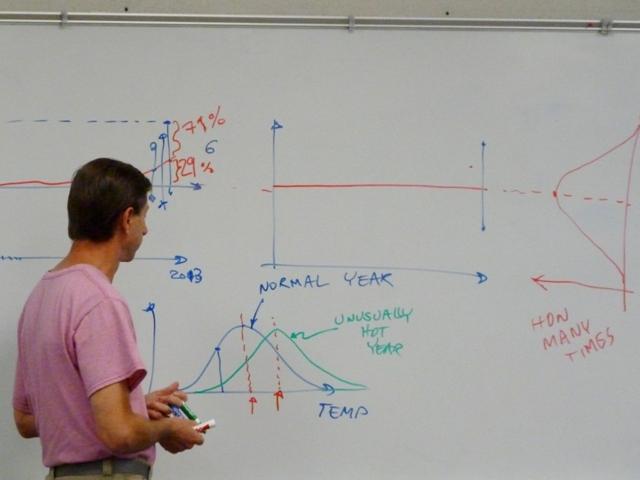 71%
6
29%
X
2013
NORMAL YEAR
UNUSUALLY
HOT
YEAR
TEMP
HOW
MANY
TIMES